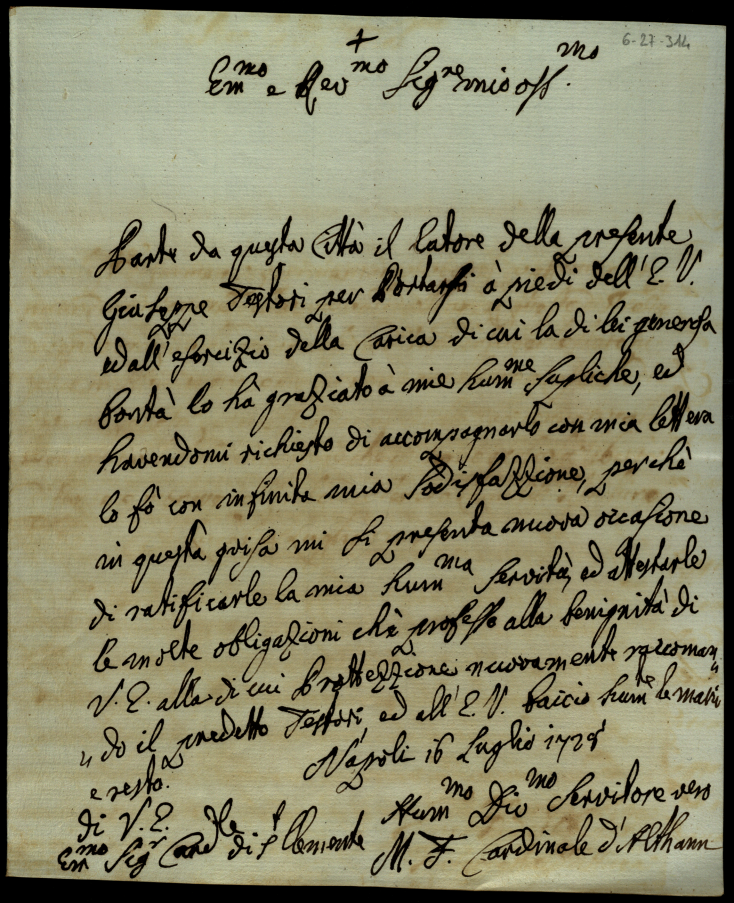 6-27-314
+
Em^mo e Rev^mo Sig^re mio oss^mo.
Parte da questa Città il latore della presente
Giuseppe Testori per Portarsi à piedi dell' E. V.
ed all' esercizio della Carica di cui la di lei generosa
bontà lo hà graziato à mie hum^me suppliche, ed
havendomi richiesto di accompagnarlo con mia lettera
lo fò con infinita mia sodisfazzione, perchè
in questa guisa mi si presenta nuova occasione
di ratificarle la mia hum^ma servitù, ed attestarle
le molte obligazioni chè professo alla benignità di
V. E. alla di cui Prottezzione nuovamente raccoman„
„do il predetto Testori, ed all' E. V. baccio hum^te le mani
e resto.
Napoli 16 Luglio 1728
di V. E.
Hum^mo Div^mo Servitore vero
Em^mo Sig^r Card^le di S. Clemente
M. F. Cardinale d'Althann